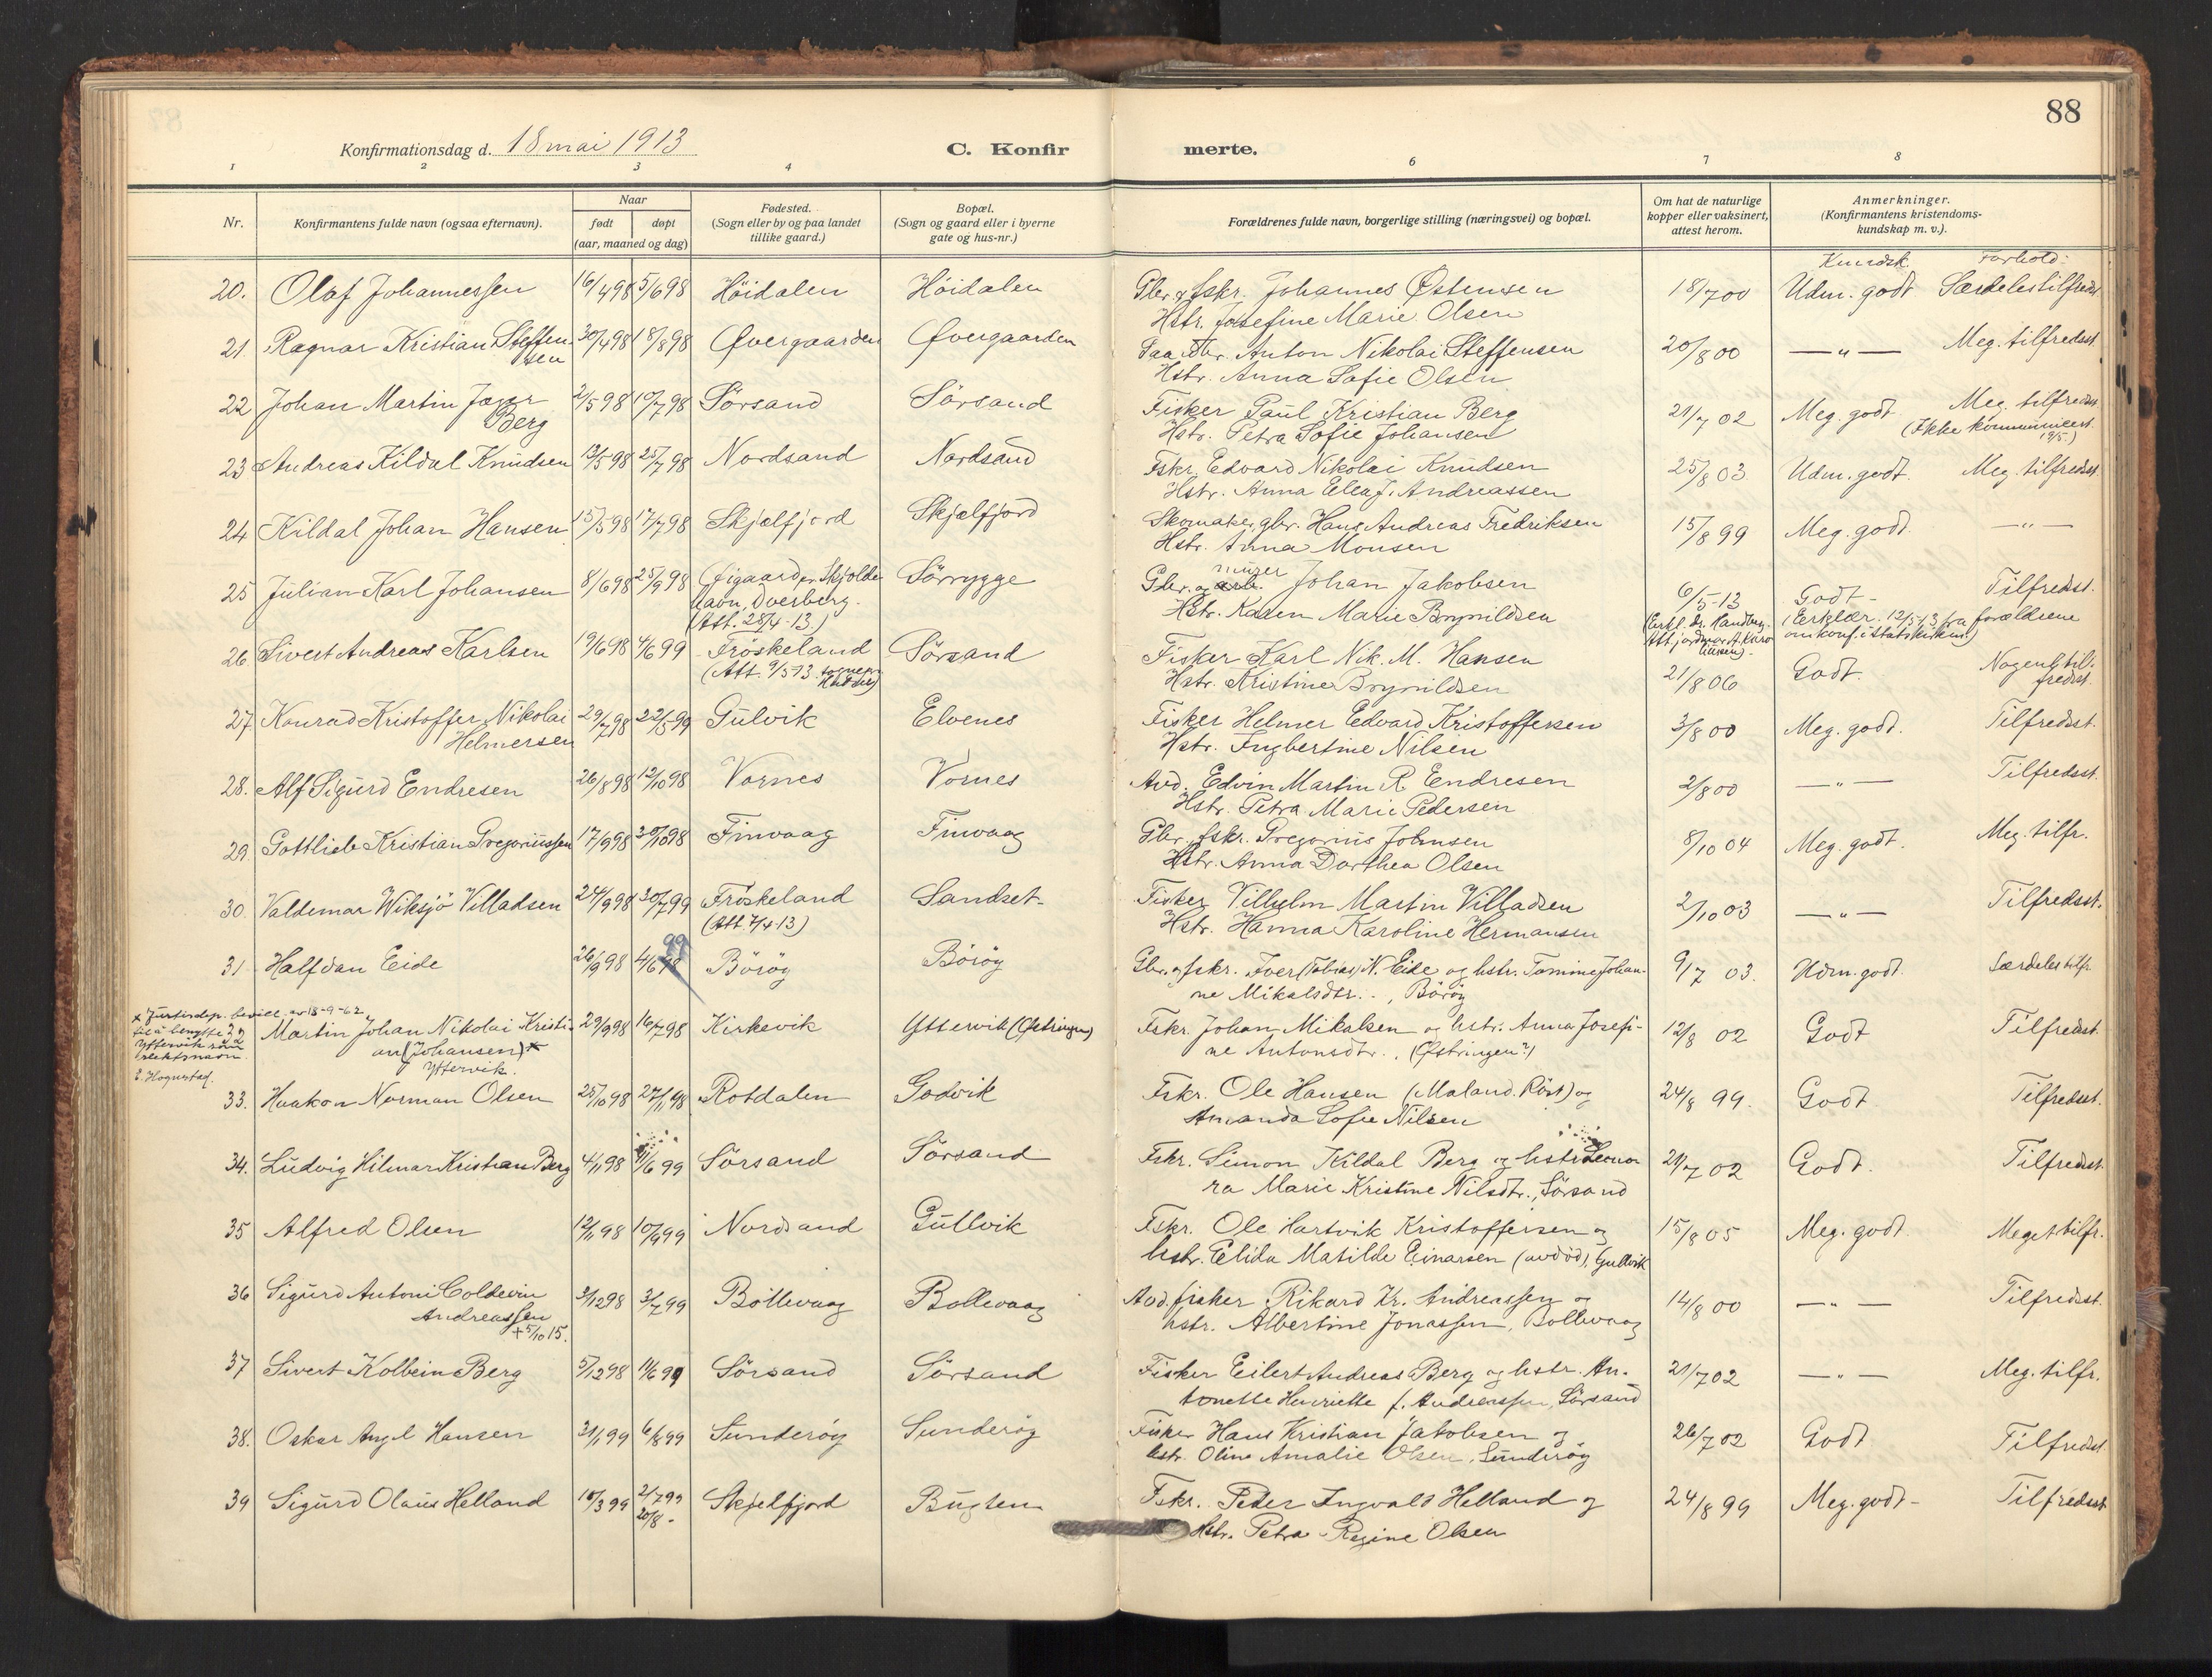 88
Konfirmationsdag d. 18 mai 1913 C. Konfir merte.
1 2 3 4 6 7 8
Nr. Konfirmantens fulde navn (ogsaa efternavn). Naar født døpt (aar, maaned og dag) Fødested. (Sogn eller by og paa landet tillike gaard.) Bopæl. (Sogn og gaard eller i byerne gate og hus-nr.) Forældrenes fulde navn, borgerlige stilling (næringsvei) og bopæl. Om hat de naturlige kopper eller vaksinert, attest herom. Anmerkninger. (Konfirmantens kristendomskundskap m. v.).
Kundsk. Forhold:
20. Olaf Johannessen 16/4 98 5/6 98 Höidalen Höidalen Gbr. & fskr. Johannes Østensen 18/7 00 Udm. godt Særdeles tilfredst.
Hstr. Josefine Marie Olsen
21 Ragnar Kristian Steffen- 30/4 98 18/8 98 Øvergaarden Øvergaarden Anton Nikolai Steffensen 20/8 00 — " — Meg. tilfredsst.
sen Hstr. Anna Sofie Olsen
22 Johan Martin 2/5 98 10/7 98 Sörsand Sörsand Fisker Paul Kristian Berg 21/7 02 Meg. godt Meg. tilfredsst.
Berg Hstr. Petra Sofie Johansen (Ikke kommunicert 19/5.)
23 Andreas Kildal Knudsen 12/5 98 25/7 98 Nordsand Nordsand Fskr. Edvard Nikolai Knudsen 25/8 03. Udm. godt. Meg. tilfredsst.
Hstr. Anna Elea J. Andreassen
24 Kildal Johan Hansen 15/5 98 17/7 98 Skjelfjord Skjelfjord Skomaker, gbr. Hans Andreas Fredriksen 15/8 99 Meg. godt. — " —
Hstr. Anna Monsen
25 Julian Karl Johansen 8/6 98 25/9 98 Øigaard pr. Skjolde- Sörrygge Gbr. og Johan Jakobsen 6/5-13 Godt - Tilfredsst.
havn, Dverberg. Hstr. Karen Marie Brynildsen
(Att. 28/4-13.) (Erklær. 12/5 13 fra forældrene
om konf. i statskirken)
26 Sivert Andreas Karlsen 19/6 98 4/6 99 Fröskeland Sörsand Fisker Karl Nik. M. Hansen 21/8 06 Godt. Noget til-
(Att. 9/5-13. Hstr. Kristine Brynildsen fredsst.
27. Konrad Kristoffer Nikolai 29/7 98 22/5 99 Gulvik Elvenes Fisker Helmer Edvard Kristoffersen 3/8 00 Meg. godt. Tilfredsst.
Helmersen Hstr. Ingbertine Nilsen
28. Alf Sigurd Endresen 26/8 98 12/10 98 Vornes Vornes Avd. Edvin Martin R. Endresen 2/8 00 — " — Tilfredsst.
Hstr. Petra Marie Pedersen
29. Gottlieb Kristian Gregoriussen 17/9 98 30/10 98 Finvaag Finvaag Gbr. fskr. Gregorius Johnsen 8/10 04 Meg. godt. Meg. tilfr.
Hstr. Anna Dorthea Olsen
30. Valdemar Wiksjö Villadsen 24/9 98 30/7 99 Fröskeland Sandset. Fisker Vilhelm Martin Villadsen 2/10 03 — " — Tilfredsst.
(Att. 7/4-13) Hstr. Hanna Karoline Hermansen
99
31 Halfdan Eide 26/9 98 4/6 98 Böröy Böröy Gbr. og fskr. Iver (Tobias) N. Eide og hstr. Tomine Johan- 9/7 03. Udm. godt. Særdeles tilfr.
ne Mikalsdtr.. , Böröy
x Justisdep. bevill. av 18-9-62
til å benytte
Yttervik som
slektsnavn.
E. Hognestad.
Martin Johan Nikolai Kristi- 29/9 98 16/7 98 Kirkevik Yttervik (Østringen) Fskr. Johan Mikalsen og hstr. Anna Josefi- 12/8 02 Godt Tilfredsst.
an (Johansen) x ne Antonsdtr.. (Østringen?)
Yttervik.
33. Haakon Norman Olsen 25/10 98 27/11 98 Rotdalen Godvik Fskr. Ole Hansen (Maland. Röst) og 24/8 99. Godt Tilfredsst.
Amanda Sofie Nilsen
34. Ludvig Hilmar Kristian Berg 4/11 98 11/6 99 Sörsand Sörsand Fskr. Simon Kildal Berg og hstr. Leono- 21/7 02 Godt. Tilfredsst.
ra Marie Kristine Nilsdtr., Sörsand
35 Alfred Olsen 12/11 98 10/9 99 Nordsand Gullvik Fskr. Ole Hartvik Kristoffersen og 15/8 05 Meg. godt. Meget tilfr.
hstr. Elida Matilde Einarsen (avdöd), Gullvik
36 Sigurd Antoni Coldevin 3/12 98 3/7 99 Böllevaag Bollevaag Avd. fisker Rikard Kr. Andreassen og 14/8 00 — " — Tilfredsst.
Andreassen hstr. Albertine Jonassen, Bollevaag
+ 5/10 15.
37 Sivert Kolbein Berg 5/12 98 11/6 99 Sörsand Sörsand Fisker Eilert Andreas Berg og hstr. An- 21/7 02 — " — Meg. tilfr.
tonette Henriette f. Andreassen, Sörsand
38. Oskar Angel Hansen 21/1 99 6/8 99 Sunderöy Sunderöy Fisker Hans Kristian Jakobsen og 26/7 02 Godt Tilfredsst.
hstr. Oline Amalie Olsen, Sunderöy
39 Sigurd Olaus Helland 10/3 99 2/7 99 Skjelfjord Bugten Fskr. Peder Ingvald Helland og 24/8 99 Meg. godt - Tilfredsst.
20/8 - Hstr. Petra Regine Olsen